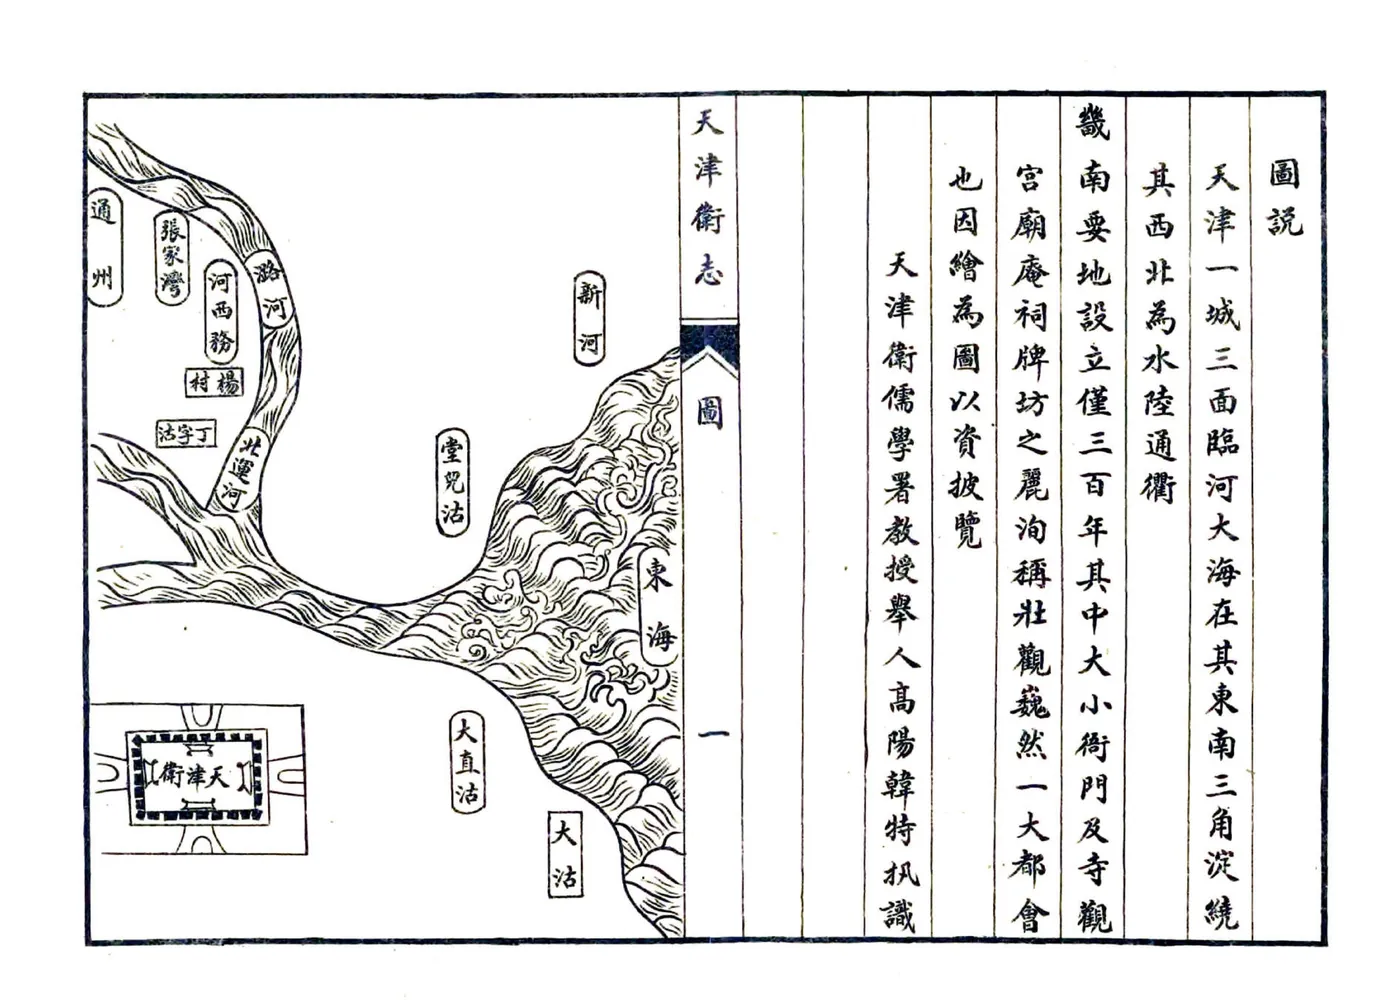 圖説
天津一城三面臨河大海在其東南三角淀繞
其西北為水陸通衢
畿南要地設立僅三百年其中大小衙門及寺觀
宮廟庵祠牌坊之麗洵稱壯觀巍然一大都會
也因繪為圖以資披覽
天津衛儒學署教授舉人高陽韓特扒識
天津衛志
圖
一
東海
新河
堂兒沽
大沽
大直沽
潞河
北運河
河西務
楊村
丁字沽
張家灣
通州
天津衛